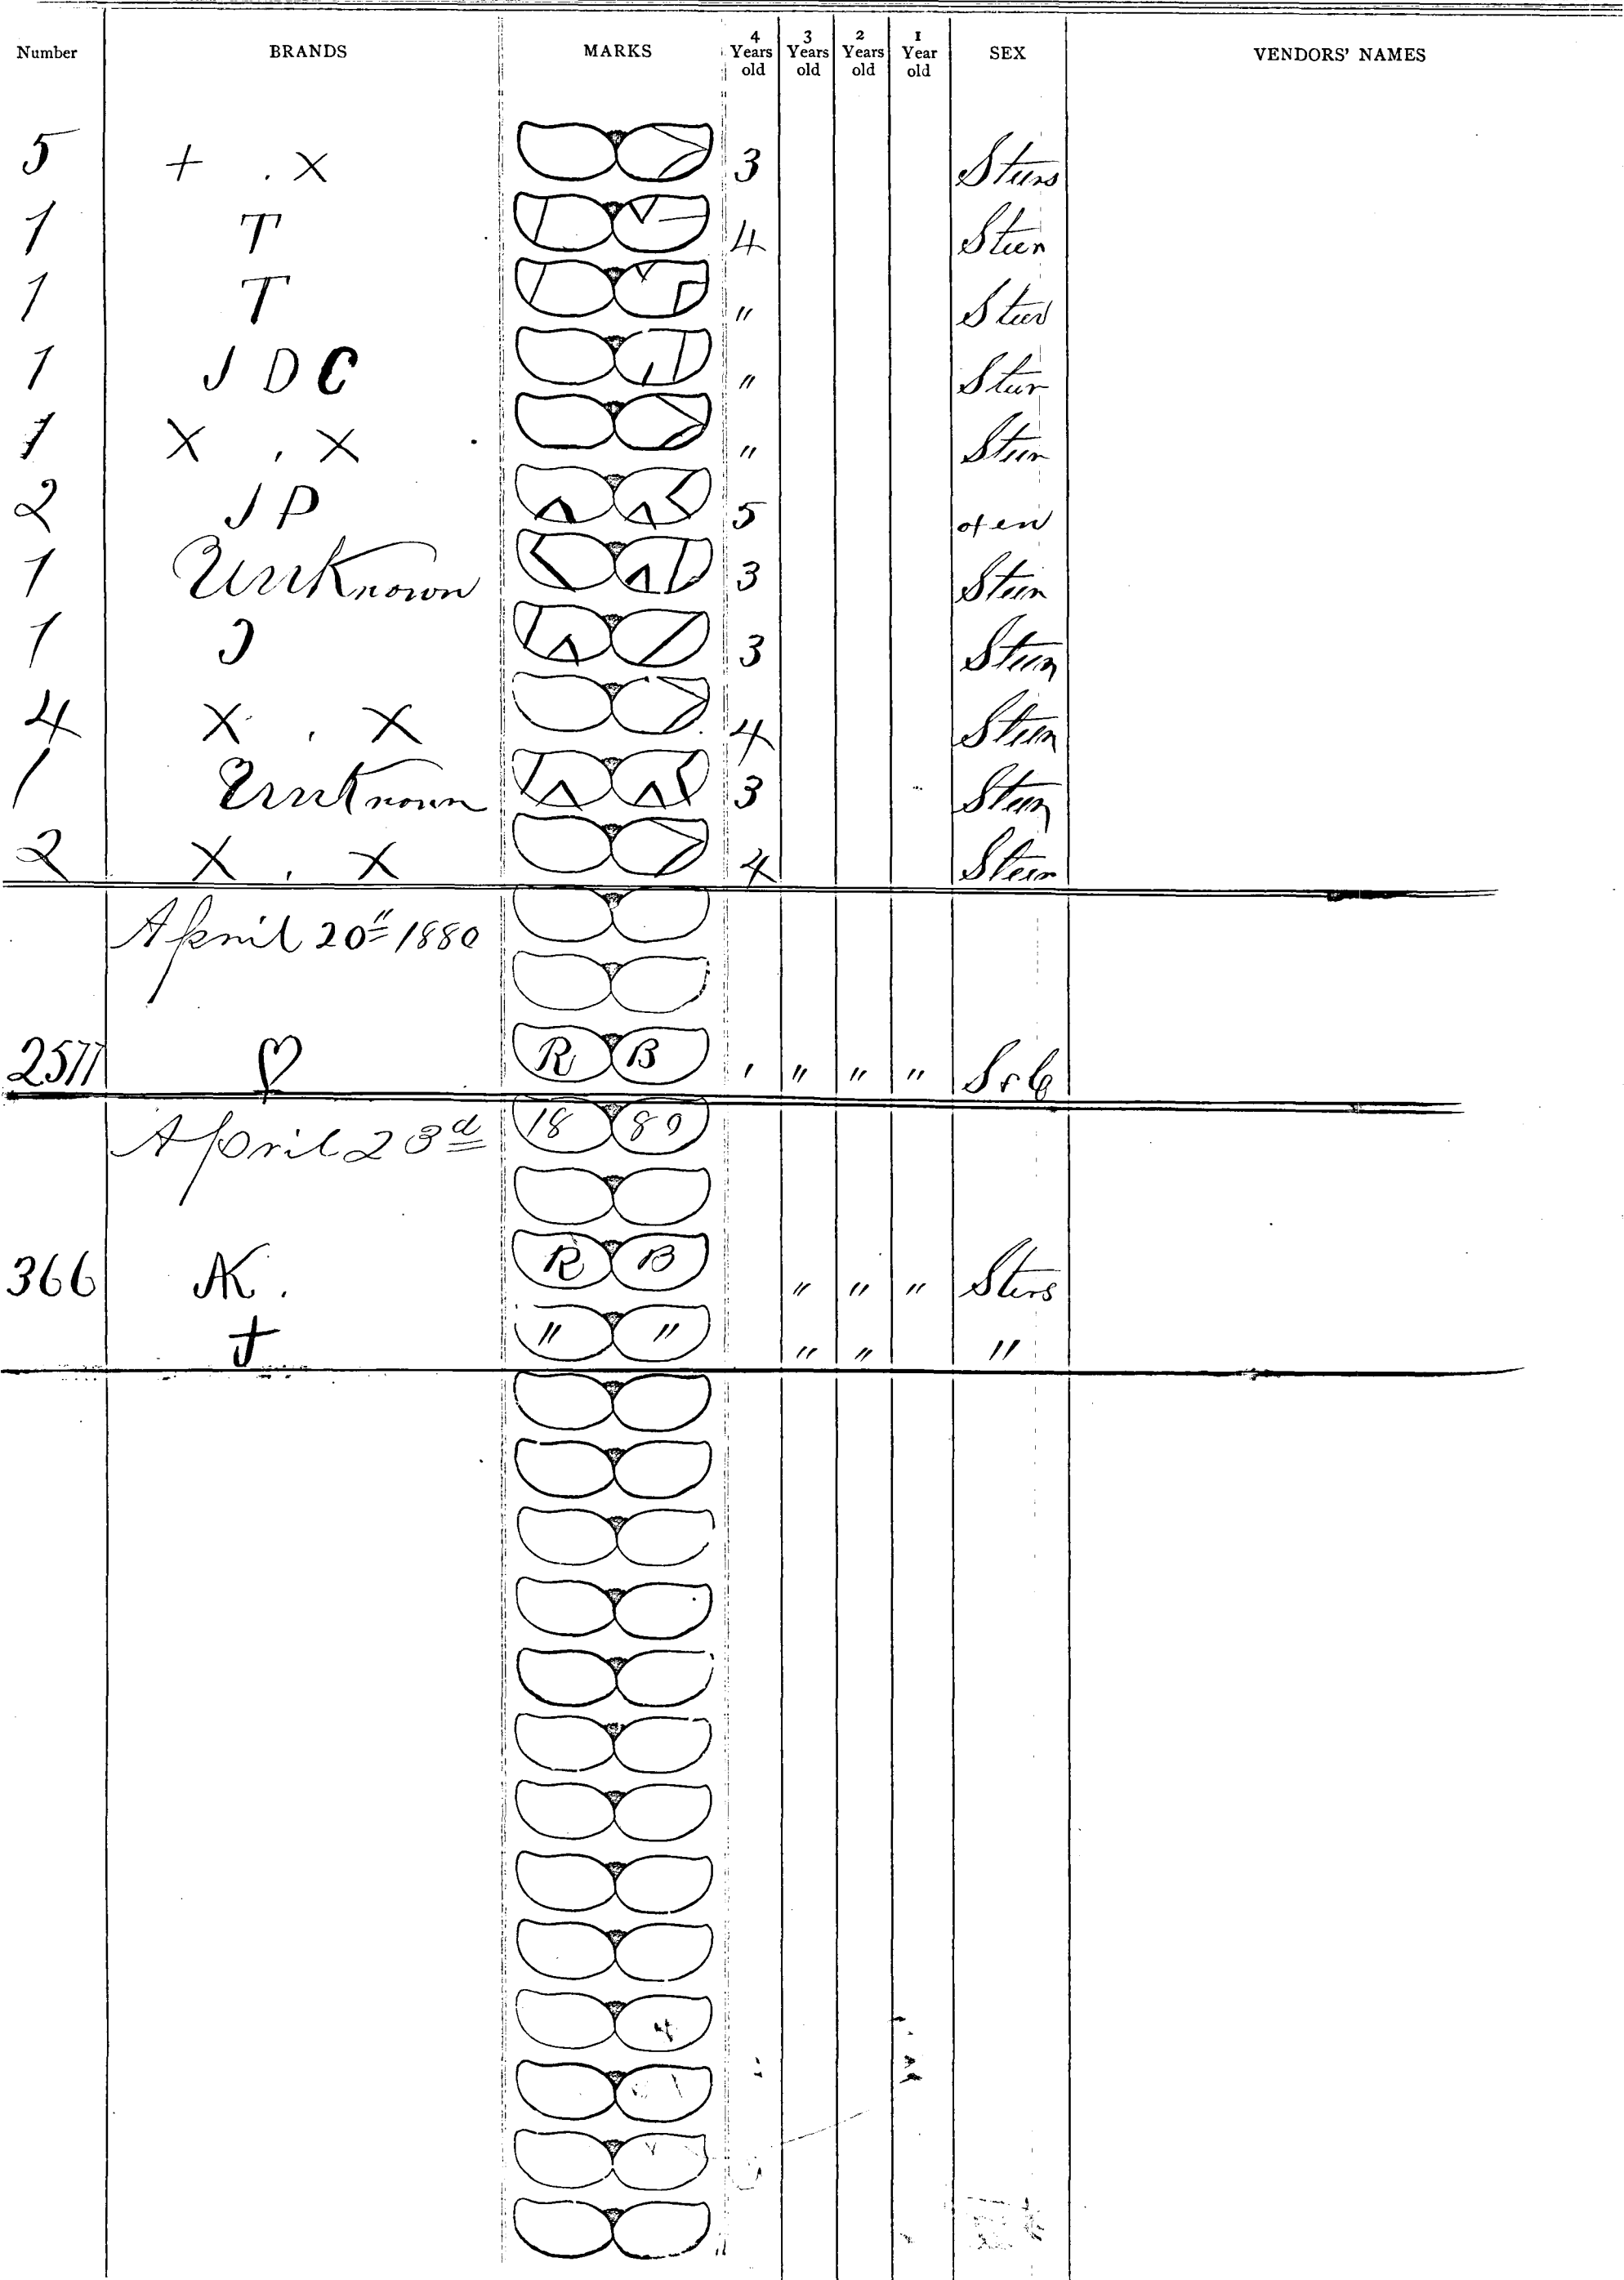 Number BRANDS MARKS 4 Years old 3 Years old 2 Years old 1 Year old SEX VENDORS' NAMES
5 + . X 3 Steers
1 T 4 Steer
1 T " Steer
1 J D C " Steer
1 X . X " Steer
2 J P 5 oxen
1 Unknown 3 Steer
1 J 3 Steer
4 X . X 4 Steer
1 Unknown 3 Steer
2 X . X 4 Steer
April 20" 1880
2577 ♡ R B ' " " " S & C
April 23d 18 80
366 R B " " " Sters
" " " " "